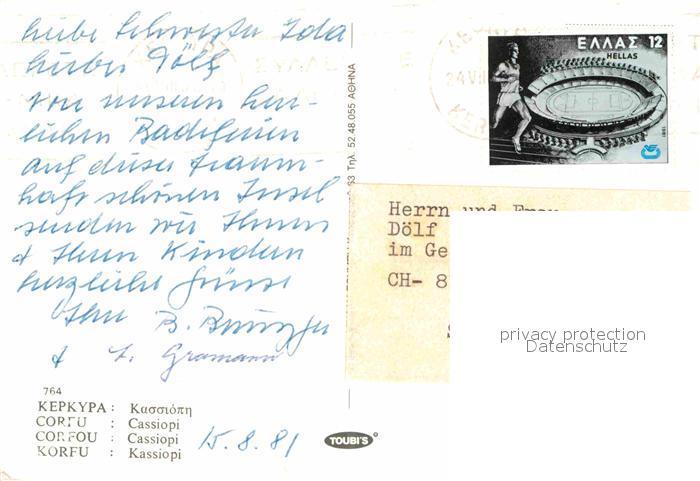 Liebe Schwester Ida
Lieber Dölf
von unseren herr-
lichen Badeferien
auf dieser traum-
haft schönen Insel
senden wir Ihnen
& Ihren Kindern
herzliche Grüsse
Ihre B.
& L. Gramann
764
ΚΕΡΚΥΡΑ : Κασσιόπη
CORFU : Cassiopi
CORFOU : Cassiopi
KORFU : Kassiopi
15.8.81
TOUBI'S
63 Τηλ. 52.48.055 ΑΘΗΝΑ
ΕΛΛΑΣ 12
HELLAS
1981
24 VII
Herrn und Frau
Dölf
im Ge
CH- 8
privacy protection
Datenschutz